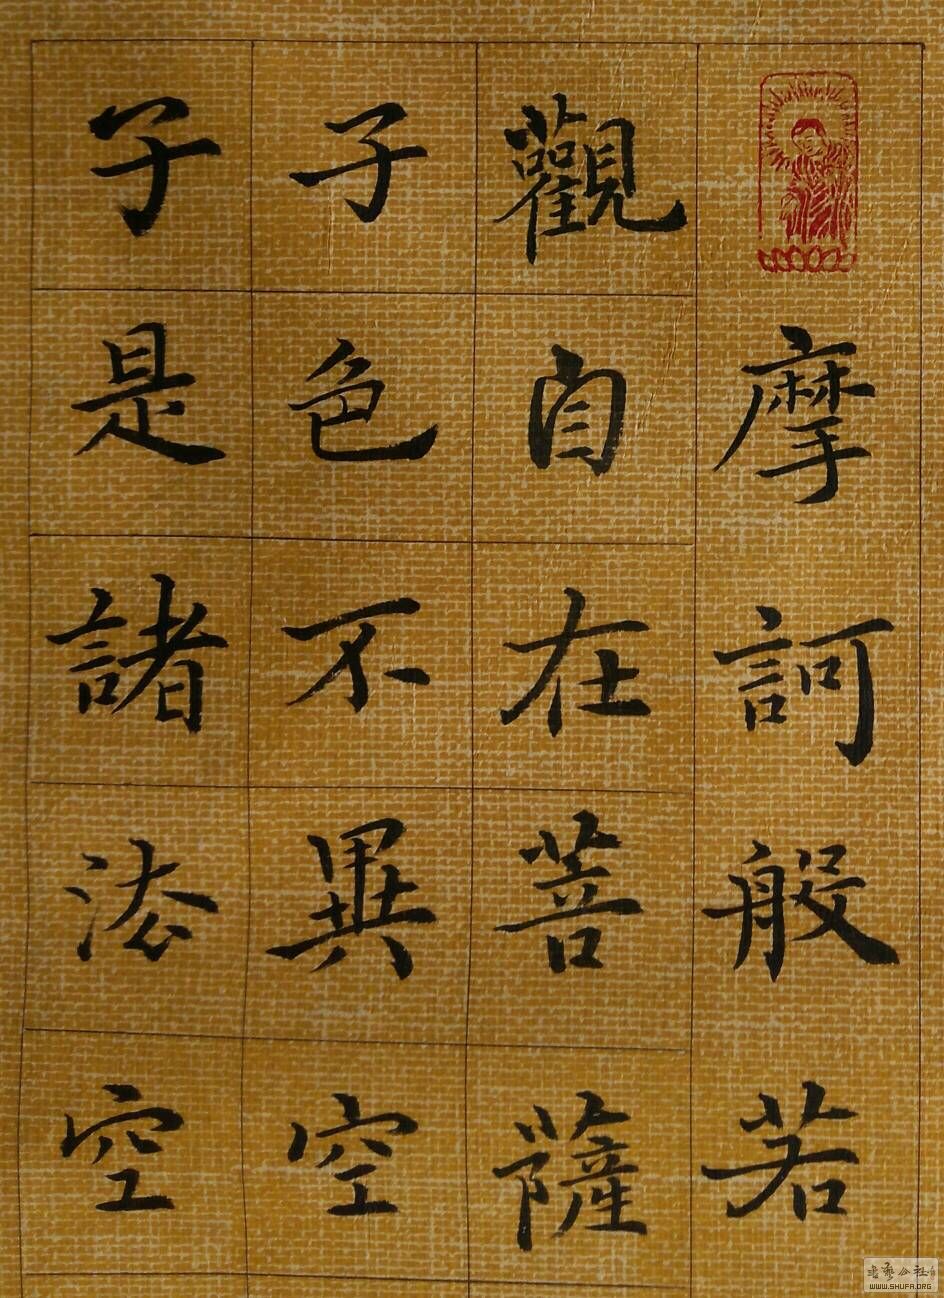 摩訶般若
觀自在菩薩
子色不異空
子是諸法空
WWW.SHUFA.ORG